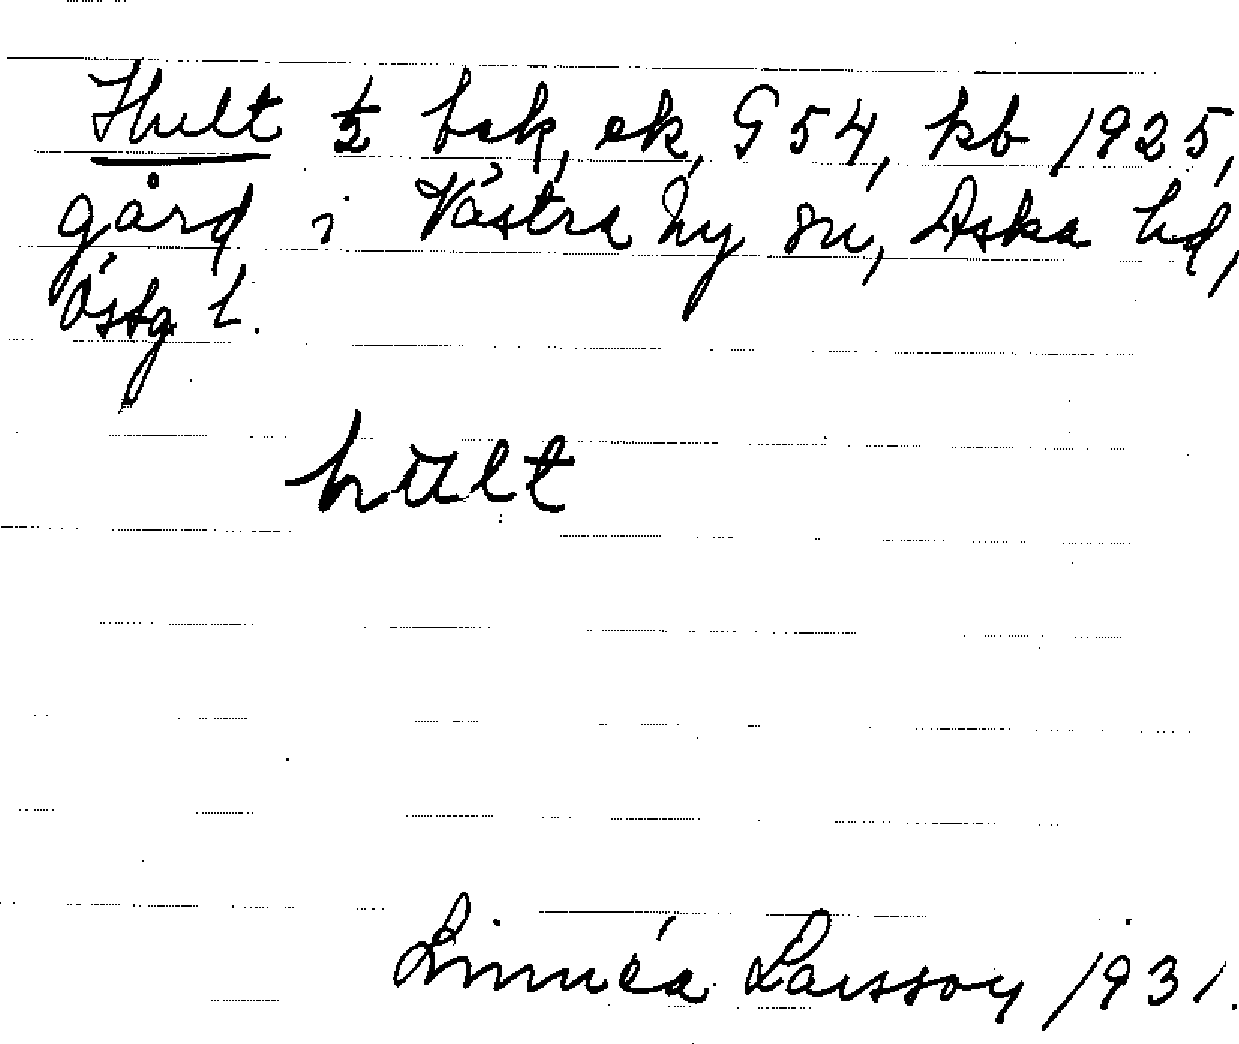 Hult ½ bsk, ek, G 54, kb 1925,
gård i Västra Ny sn, Aska hd,
Östg l.
hult
Linnéa Larsson 1931.